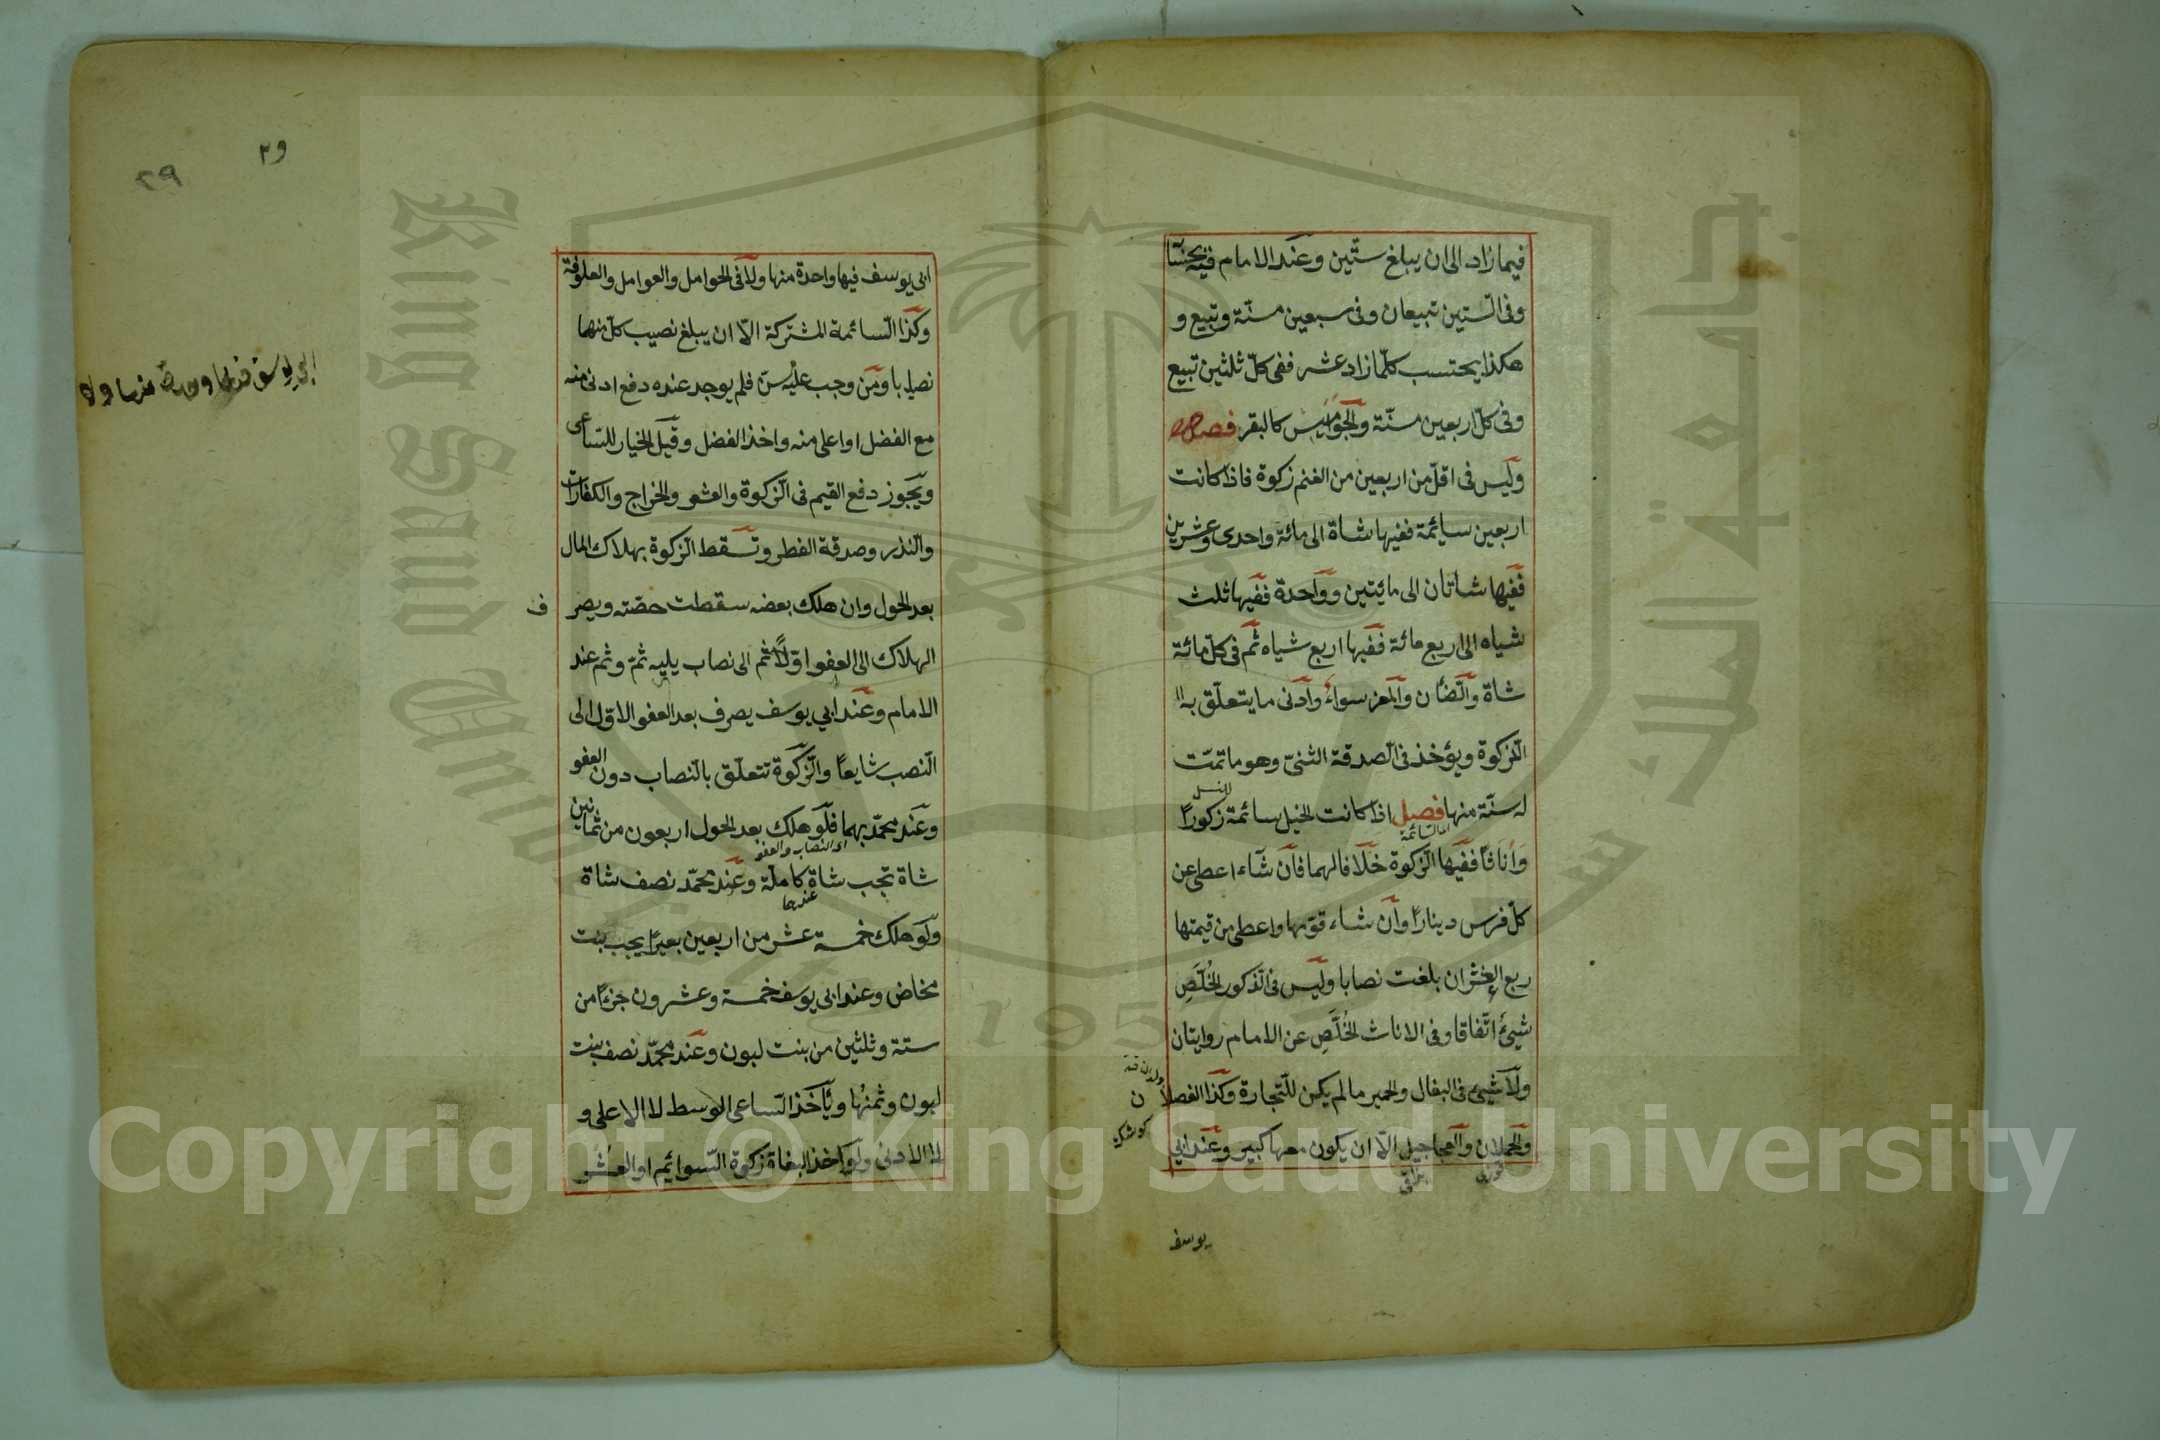 فيما زاد الى ان يبلغ ستّين وعند الامام فيه بحسبا
وفى الستين تبيعان وفى سبعين مسنّة وتبيع و
هكذا يحتسب كلّما زاد عشر ففى كلّ ثلثين تبيع
وفى كلّ اربعين مسنّة والجواميس كالبقر فصل
وليس فى اقلّ من اربعين من الغنم زكوة فاذا كانت
اربعين سايمة ففيها شاة الى مائة واحدى وعشرين
ففيها شاتان الى مايتين وواحدة ففيها ثلث
شياه الى اربع مائة ففيها اربع شياه ثم فى كلّ مائة
شاة والضّأن والمعز سواء وادنى ما يتعلّق به
الزكوة ويؤخذ فى الصدقة الثنىّ وهو ما تمّت
للنسل
له سنّة منها فصل اذا كانت الخيل سائمة زكورا
اى السائمة
واناثا ففيها الزكوة خلافا لهما فان شآء اعطى عن
كلّ فرس دينارا وان شاء قوّمها واعطى من قيمتها
ربع العشر ان بلغت نصابا وليس فى الذكور الخُلَّصِ
شيئ اتّفاقا وفى الاناث الخُلَّصِ عن الامام روايتان
ولا شيئ فى البغال والحمير ما لم يكن للتجارة وكذا الفصلا
ن
والحملان والعجاجيل الّا ان يكون معها كبير وعند ابى
يوسف
٢٩
ابى يوسف فيها واحدة منها ولا
ابى يوسف فيها واحدة منها ولا فى الحوامل والعوامل والعلوفة
وكذا السائمة المشتركة الّا ان يبلغ نصيب كلّ منها
نصابا ومن وجب عليه سنّ فلم يوجد عنده دفع ادنى منه
مع الفضل او اعلى منه واخذ الفضل وقيل الخيار للسّاعى
ويجوز دفع القيم فى الزكوة والعشر والخراج والكفارات
والنذر وصدقة الفطر وتسقط الزكوة بهلاك المال
بعد الحول وان هلك بعضه سقطت حصّته ويصر
ف
الهلاك الى العفو اوّلا ثم الى نصاب يليه ثمّ وثم عند
الامام وعند ابي يوسف يصرف بعد العفو الاوّل الى
النصب شايعا والزكوة تتعلّق بالنصاب دون العفو
وعند محمّد بهما فلو هلك بعد الحول اربعون من ثمانين
اى النصاب والعفو
شاة تجب شاة كاملة وعند محمّد نصف شاة
عندهما
ولو هلك خمسة عشر من اربعين بعيرا يجب بنت
مخاض وعند ابى يوسف خمسة وعشرون جزءا من
ستة وثلثين من بنت لبون وعند محمّد نصف بنت
لبون وثمنها ويأخذ السّاعى الوسط لا الاعلى و
لا الادنى ولو اخذ البغاة زكوة السّوائم او العشر